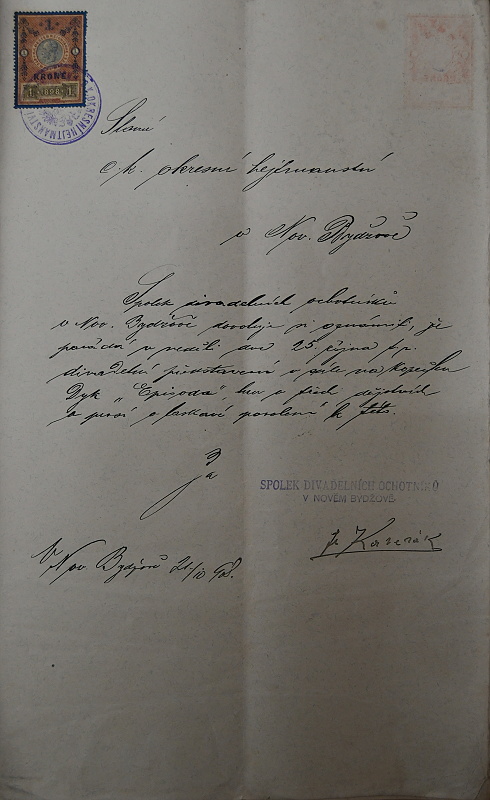 1
KRONE
1 1898 1
OKRESNÍ HEJTMANSTVÍ
Slavné
c. k. okresní hejtmanství
v Nov. Bydžově
Spolek divadelních ochotníků
v Nov. Bydžově dovoluje si oznámiti, že
pořádá v neděli dne 25 října t. r.
divadelní představení v sále na
Dyk „Episoda" hra o třech dějstvích
a prosí o laskavé povolení k této.
SPOLEK DIVADELNÍCH OCHOTNÍKŮ
V NOVÉM BYDŽOVĚ
V Nov. Bydžově 21/10 908.